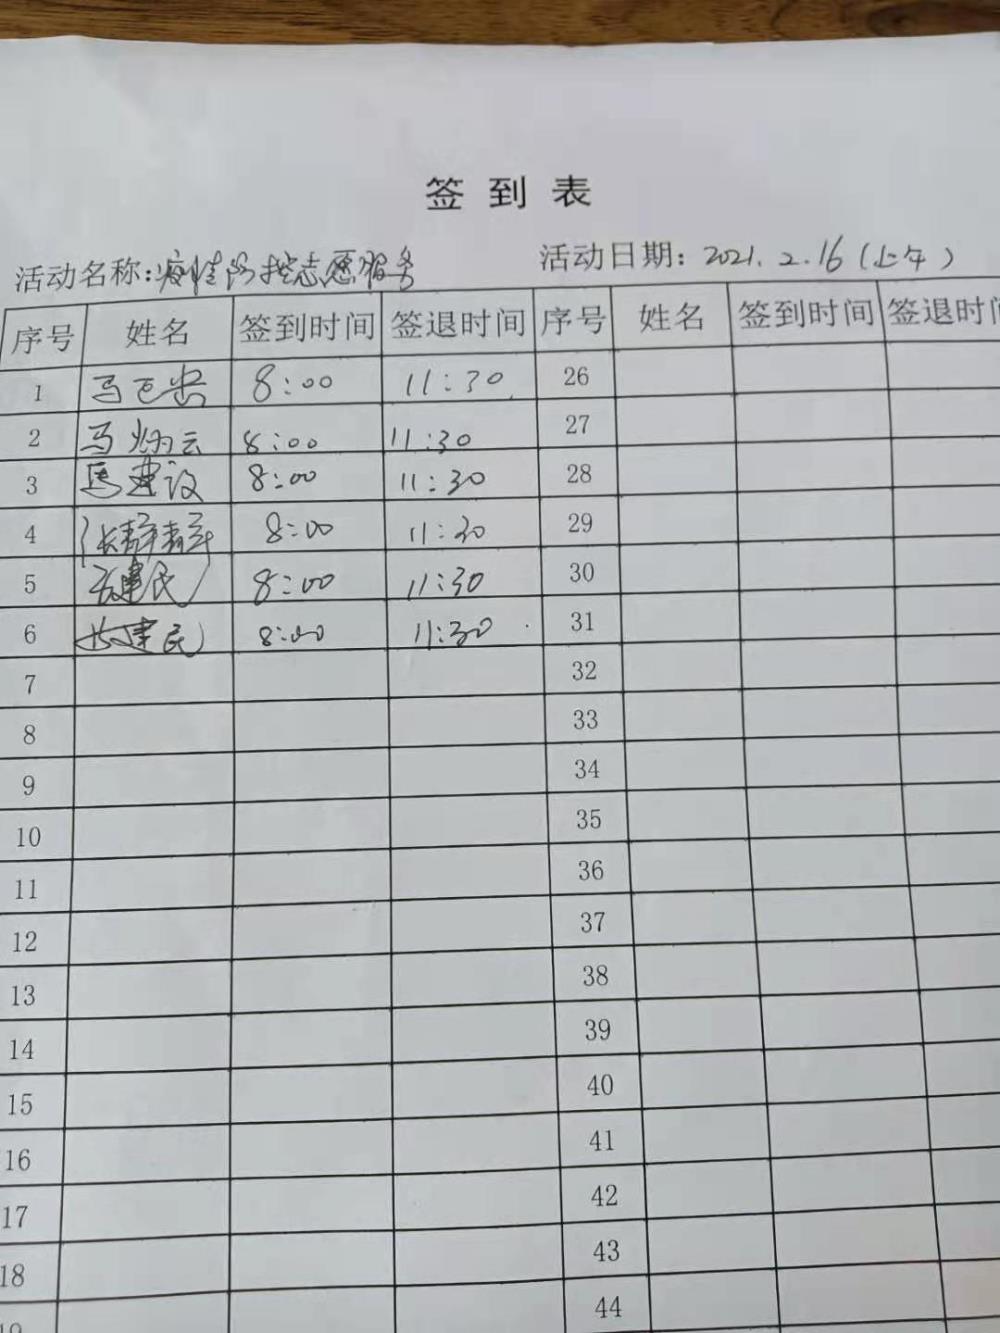 签到表
活动名称:疫情防控志愿服务 活动日期: 2021.2.16(上午)
序号 姓名 签到时间 签退时间 序号 姓名 签到时间 签退时
1 马 8:00 11:30 26
2 马炳云 8:00 11:30 27
3 馬建设 8:00 11:30 28
4 张群群 8:00 11:30 29
5 建民 8:00 11:30 30
6 建民 8:00 11:30 31
7 32
8 33
9 34
10 35
11 36
12 37
13 38
14 39
15 40
16 41
17 42
18 43
19 44